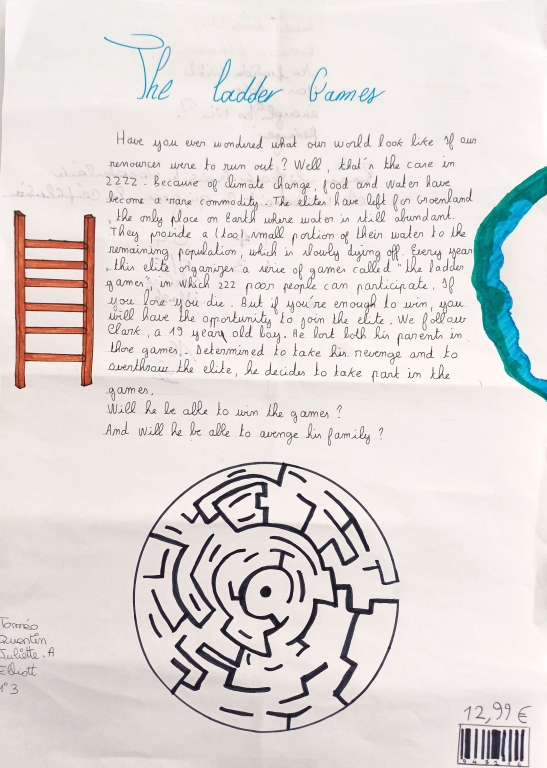 The ladder Games
Have you ever wondered what our world look like if our
ressources were to run out ? Well, that's the case in
2222. Because of climate change, food and water have
become a rare commodity. The elites have left for Groenland
, the only place on Earth where water is still abundant.
They provide a (too) small portion of their water to the
remaining population, which is slowly dying off. Every year
, this elite organizes a serie of games called "the ladder
games", in which 222 poor people can participate. If
you lose you die. But if you're enough to win, you
will have the opportunity to join the elite. We follow
Clark, a 19 years old boy. He lost both his parents in
those games. Determined to take his revenge and to
overthrow the elite, he decides to take part in the
games.
Will he be able to win the games ?
And will he be able to avenge his family ?
Toméo
Quentin
Juliette.A
Elliott
1°3
12,99 €